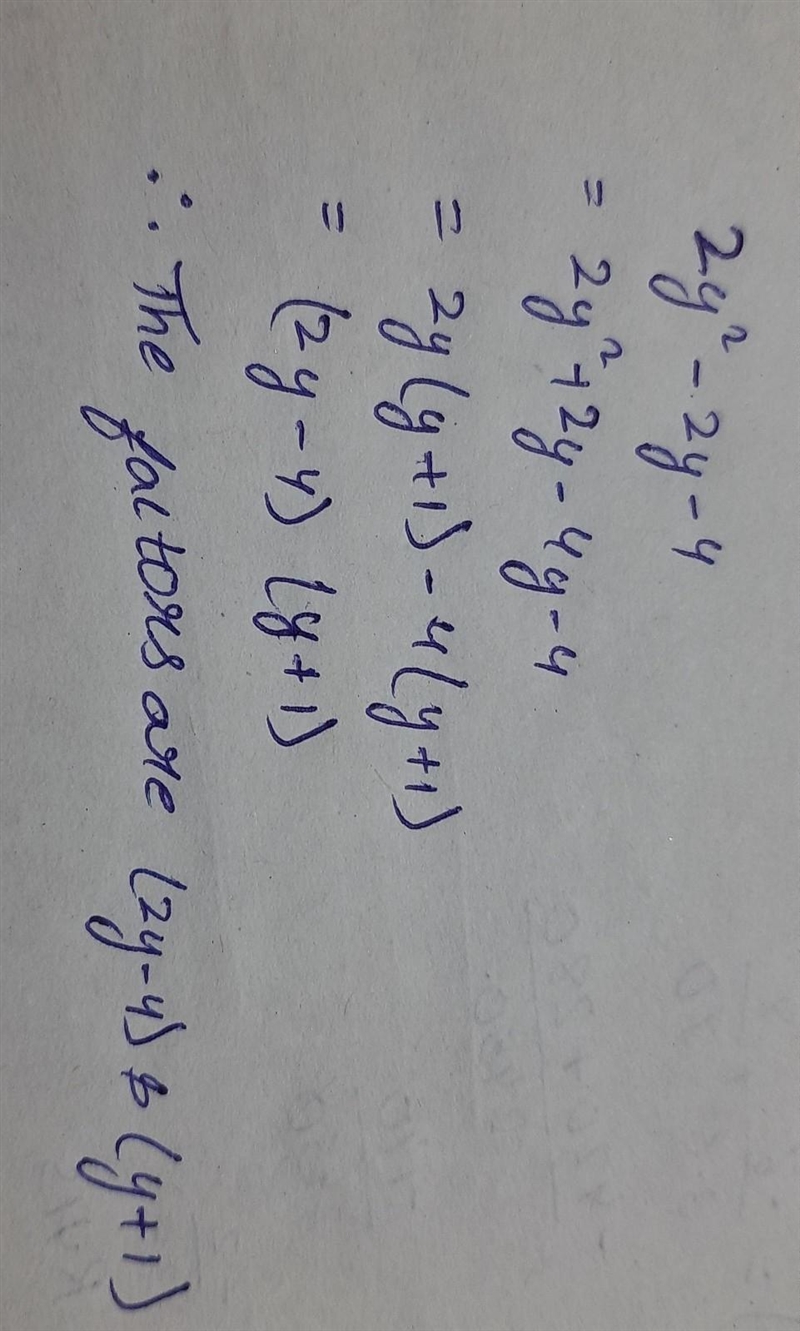 2y² - 2y - 4
= 2y² + 2y - 4y - 4
= 2y(y+1) - 4(y+1)
= (2y-4) (y+1)
∴ The factors are (2y-4) & (y+1)